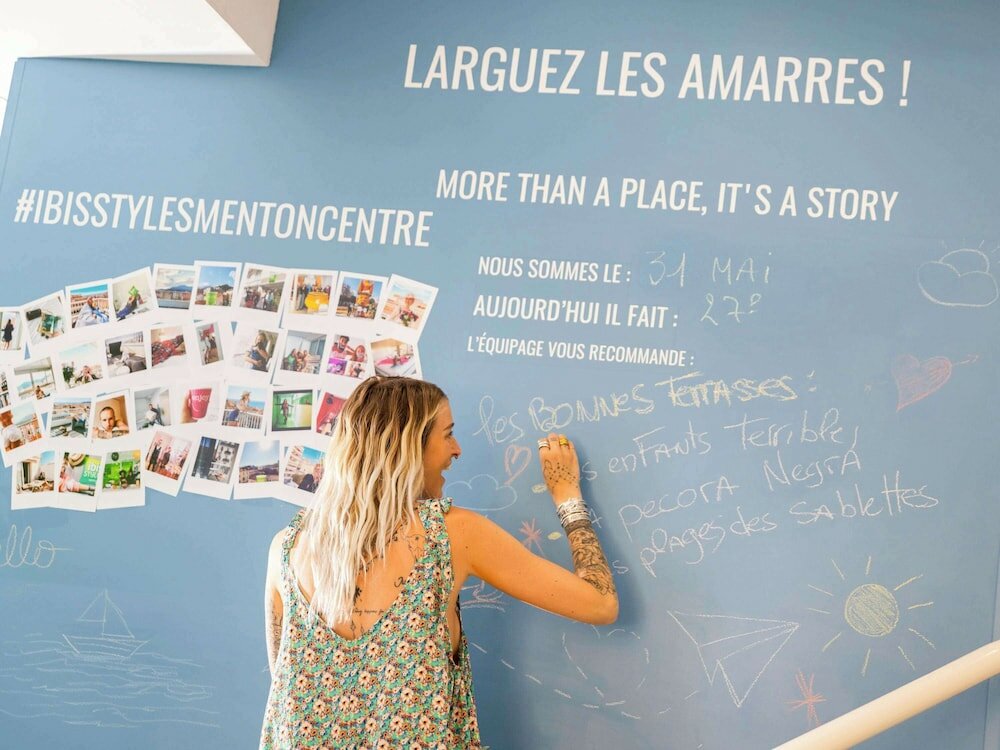 LARGUEZ LES AMARRES !
MORE THAN A PLACE, IT'S A STORY
#IBISSTYLESMENTONCENTRE
NOUS SOMMES LE : 31 MAI
AUJOURD'HUI IL FAIT : 27°
L'ÉQUIPAGE VOUS RECOMMANDE :
les BONNES TERRASSES :
enfants terribles
pecora Negra
plages des sablettes
enjoy